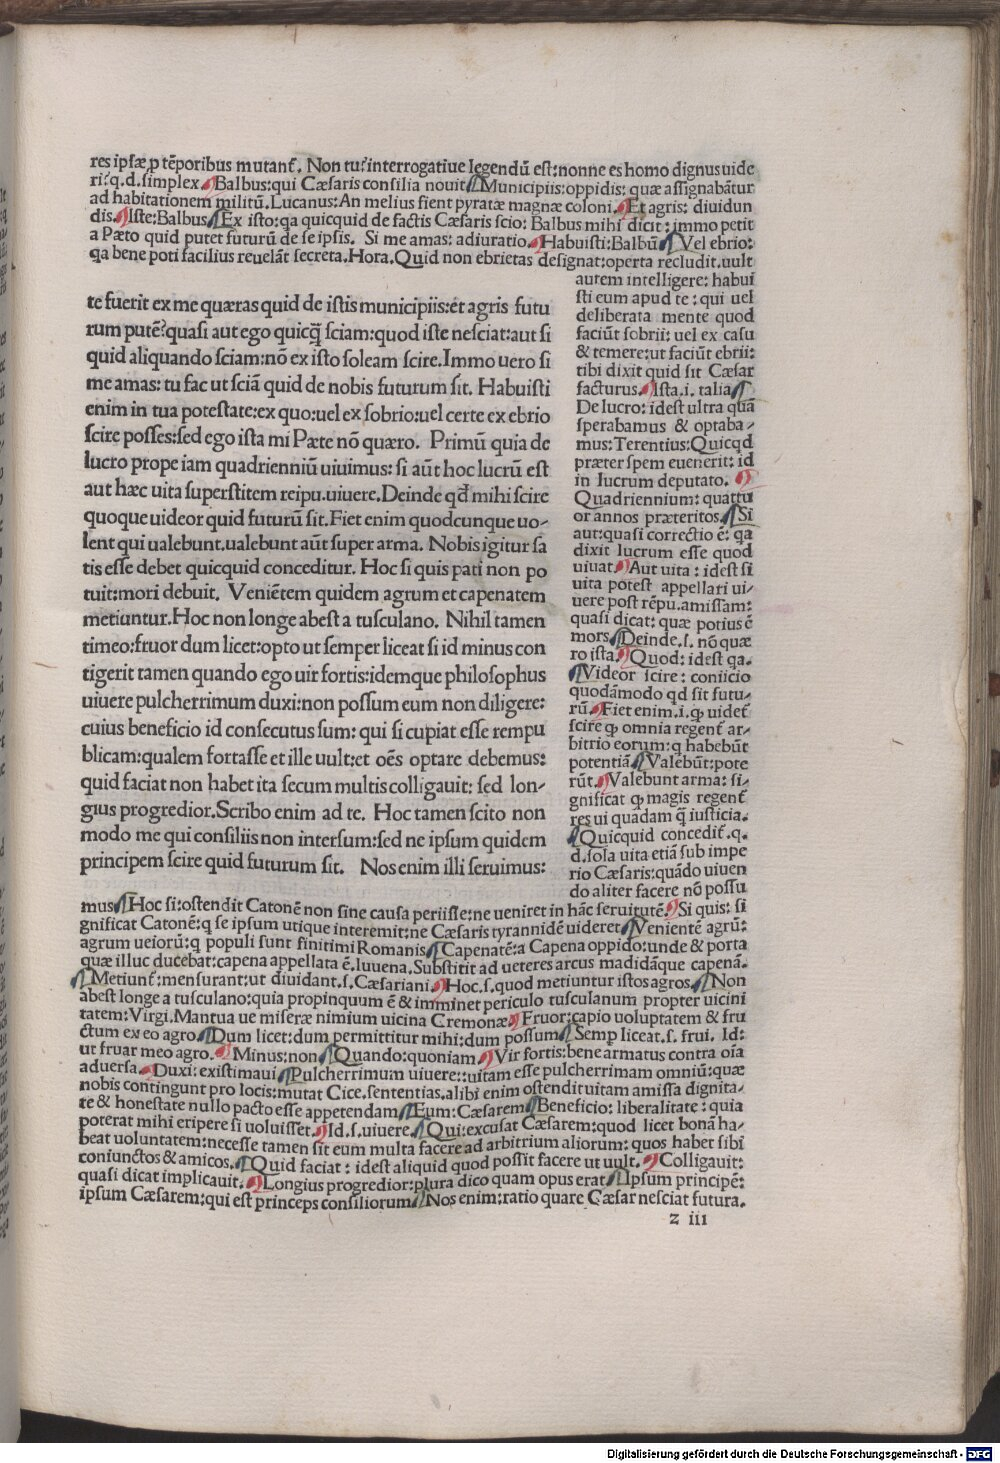 res ipsæ ꝓ tēporibus mutant̄. Non tu?interrogatiue legendū est:nonne es homo dignus uide
ri?q.d.simplex ¶Balbus:qui Cæsaris consilia nouit ¶Municipiis:oppidis: quæ assignabātur
ad habitationem militū.Lucanus:An melius fient pyratæ magnæ coloni. ¶Et agris: diuidun
dis. ¶Iste:Balbus ¶Ex isto:qa quicquid de factis Cæsaris scio: Balbus mihi dicit : immo petit
a Pæto quid putet futurū de se ipsis. Si me amas: adiuratio. ¶Habuisti:Balbū ¶Vel ebrio:
qa bene poti facilius reuelāt secreta.Hora.Quid non ebrietas designat:operta recludit.uult
autem intelligere: habui
sti eum apud te : qui uel
deliberata mente quod
faciūt sobrii: uel ex casu
& temere:ut faciūt ebrii:
tibi dixit quid sit Cæsar
facturus. ¶Ista.i. talia ¶
De lucro: idest ultra quā
sperabamus & optaba-
mus:Terentius:Quicqd
præter spem euenerit: id
in lucrum deputato. ¶
Quadriennium: quattu
or annos præteritos ¶Si
aut:quasi correctio ē: qa
dixit lucrum esse quod
uiuat ¶Aut uita : idest si
uita potest appellari ui-
uere post rēpu.amissam:
quasi dicat: quæ potius ē
mors ¶Deinde.s. nō quæ
ro ista. ¶Quod: idest qa.
¶Videor scire : coniicio
quodāmodo qd sit futu-
rū. ¶Fiet enim.i.ꝙ uidet̄
scire ꝙ omnia regent̄ ar-
bitrio eorum:q habebūt
potentiā ¶Valebūt:pote
rūt. ¶Valebunt arma: si-
gnificat ꝙ magis regent̄
res ui quadam q̄ iusticia.
¶Quicquid concedit̄.q.
d.sola uita etiā sub impe
rio Cæsaris:quādo uiuen
do aliter facere nō possu
te fuerit ex me quæras quid de istis municipiis:et agris futu
rum putē?quasi aut ego quicq̄ sciam:quod iste nesciat:aut si
quid aliquando sciam:nō ex isto soleam scire.Immo uero si
me amas: tu fac ut sciā quid de nobis futurum sit. Habuisti
enim in tua potestate:ex quo:uel ex sobrio:uel certe ex ebrio
scire posses:sed ego ista mi Pæte nō quæro. Primū quia de
lucro prope iam quadrienniū uiuimus: si aūt hoc lucrū est
aut hæc uita superstitem reipu.uiuere.Deinde qd̄ mihi scire
quoque uideor quid futurū sit.Fiet enim quodcunque uo-
lent qui ualebunt.ualebunt aūt super arma. Nobis igitur sa
tis esse debet quicquid conceditur. Hoc si quis pati non po
tuit:mori debuit. Veniētem quidem agrum et capenatem
metiuntur.Hoc non longe abest a tusculano. Nihil tamen
timeo:fruor dum licet:opto ut semper liceat si id minus con
tigerit tamen quando ego uir fortis:idemque philosophus
uiuere pulcherrimum duxi:non possum eum non diligere:
cuius beneficio id consecutus sum: qui si cupiat esse rempu
blicam:qualem fortasse et ille uult:et oēs optare debemus:
quid faciat non habet ita secum multis colligauit: sed lon-
gius progredior.Scribo enim ad te. Hoc tamen scito non
modo me qui consiliis non intersum:sed ne ipsum quidem
principem scire quid futurum sit. Nos enim illi seruimus:
mus ¶Hoc si:ostendit Catonē non sine causa periisse:ne ueniret in hāc seruitutē. ¶Si quis: si
gnificat Catonē:q se ipsum utique interemit:ne Cæsaris tyrannidē uideret ¶Venientē agrū:
agrum ueiorū:q populi sunt finitimi Romanis ¶Capenatē:a Capena oppido:unde & porta
quæ illuc ducebat:capena appellata ē.Iuuena.Substitit ad ueteres arcus madidāque capenā.
¶Metiunt̄:mensurant:ut diuidant.s.Cæsariani. ¶Hoc.s.quod metiuntur istos agros. ¶Non
abest longe a tusculano:quia propinquum ē & imminet periculo tusculanum propter uicini
tatem:Virgi.Mantua ue miseræ nimium uicina Cremonæ ¶Fruor:capio uoluptatem & fru
ctum ex eo agro ¶Dum licet:dum permittitur mihi:dum possum ¶Semp liceat.s. frui. Id:
ut fruar meo agro. ¶Minus:non ¶Quando:quoniam ¶Vir fortis:bene armatus contra oīa
aduersa. ¶Duxi: existimaui ¶Pulcherrimum uiuere::uitam esse pulcherrimam omniū:quæ
nobis contingunt pro locis:mutat Cice.sententias.alibi enim ostendit uitam amissa dignita-
te & honestate nullo pacto esse appetendam ¶Eum:Cæsarem ¶Beneficio: liberalitate : quia
poterat mihi eripere si uoluisset. ¶Id.s.uiuere. ¶Qui:excusat Cæsarem:quod licet bonā ha-
beat uoluntatem:necesse tamen sit eum multa facere ad arbitrium aliorum: quos habet sibi
coniunctos & amicos. ¶Quid faciat : idest aliquid quod possit facere ut uult. ¶Colligauit:
quasi dicat implicauit. ¶Longius progredior:plura dico quam opus erat ¶Ipsum principē:
ipsum Cæsarem:qui est princeps consiliorum ¶Nos enim:ratio quare Cæsar nesciat futura.
z iii
Digitalisierung gefördert durch die Deutsche Forschungsgemeinschaft - DFG